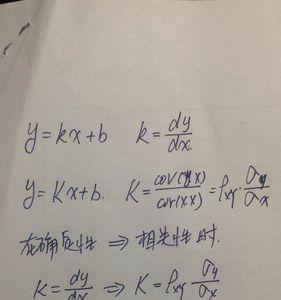 y=kx+b k=dy/dx
y=Kx+b. K=cov(y,x)/cov(x,x)=ρxy·σy/σx
在确定性 ⇒ 相关性时.
K=dy/dx ⇒ K=ρxy σy/σx